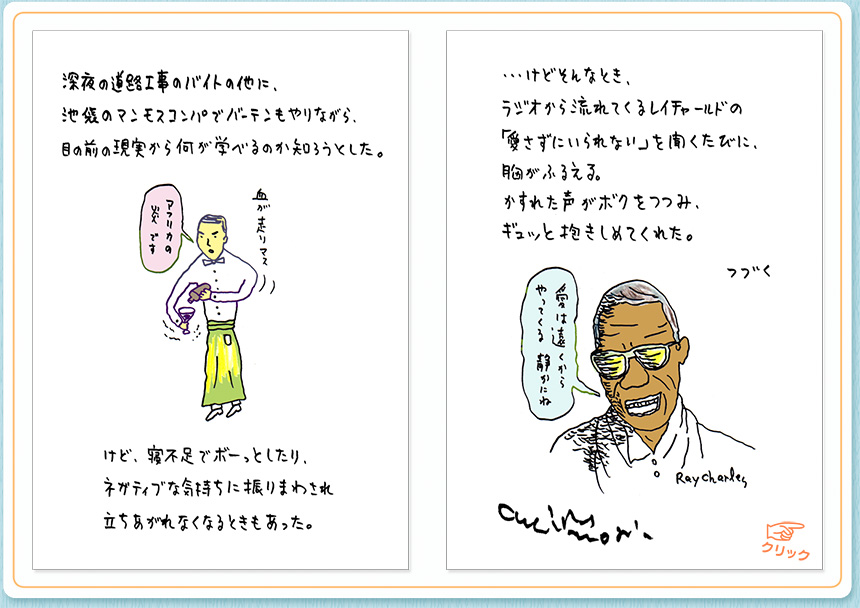 深夜の道路工事のバイトの他に、
池袋のマンモスコンパでバーテンもやりながら、
目の前の現実から何が学べるのか知ろうとした。
血が走りマス
アフリカの
炎です
けど、寝不足でボーっとしたり、
ネガティブな気持ちに振りまわされ
立ちあがれなくなるときもあった。
…けどそんなとき、
ラジオから流れてくるレイチャールズの
「愛さずにいられない」を聞くたびに、
胸がふるえる。
かすれた声がボクをつつみ、
ギュッと抱きしめてくれた。
つづく
愛は遠くから
やってくる 静かにね
Ray Charles
クリック